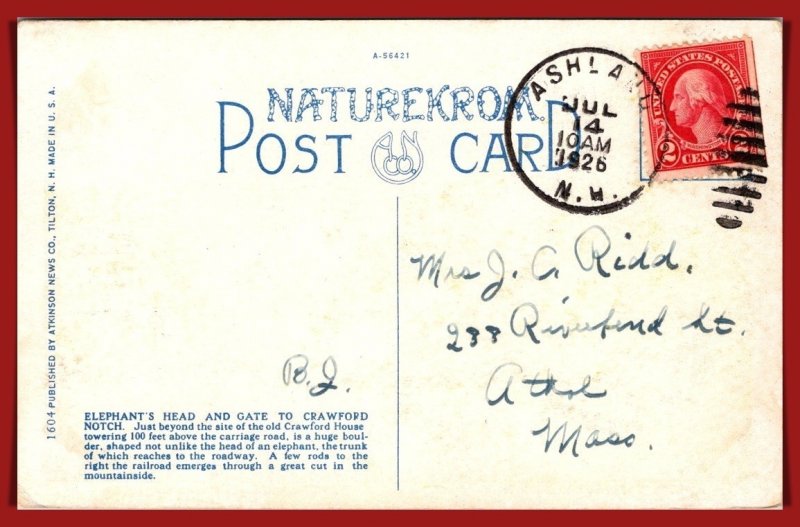 A-56421
NATUREKROM
POST CARD
A.N. CO.
ASHLAND
JUL
14
10AM
1926
N.H.
UNITED STATES POSTAGE
WASHINGTON
2 CENTS 2
1604 PUBLISHED BY ATKINSON NEWS CO., TILTON, N. H. MADE IN U. S. A.
Mrs J. A. Ridd.
233 Riverbend St.
Athol
Mass.
B.J.
ELEPHANT'S HEAD AND GATE TO CRAWFORD
NOTCH. Just beyond the site of the old Crawford House
towering 100 feet above the carriage road, is a huge boul-
der, shaped not unlike the head of an elephant, the trunk
of which reaches to the roadway. A few rods to the
right the railroad emerges through a great cut in the
mountainside.